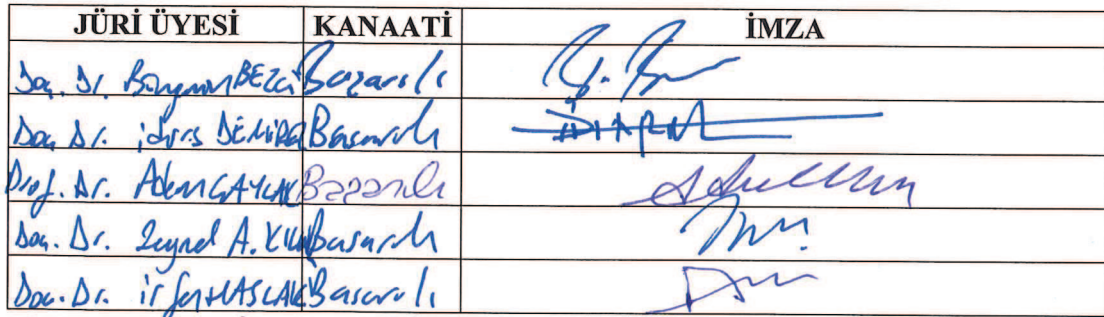 JÜRİ ÜYESİ KANAATİ İMZA
Doç. Dr. Bünyamin BEZCİ Başarılı
Doç. Dr. İdris DEMİREL Başarılı
Prof. Dr. Adem ÇAYLAK Başarılı
Doç. Dr. Zeynel A. Başarılı
Doç. Dr. İrfan HAŞLAK Başarılı